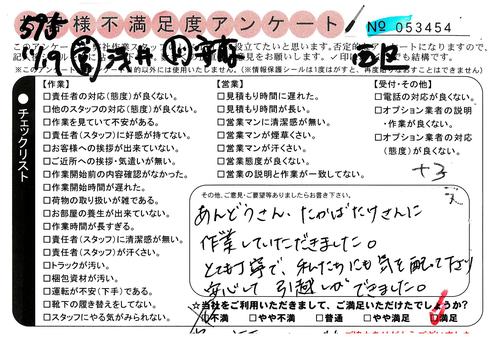 お客様不満足度アンケート
№ 053454
【作業】
□責任者の対応(態度)が良くない。
□他のスタッフの対応(態度)が良くない。
□作業を見ていて不安がある。
□責任者(スタッフ)に好感が持てない。
□お客様への挨拶が出来ていない。
□ご近所への挨拶・気遣いが無い。
□作業開始前の内容確認がなかった。
□作業開始時間が遅れた。
□荷物の取り扱いが雑である。
□お部屋の養生が出来ていない。
□作業時間が長すぎる。
□責任者(スタッフ)に清潔感が無い。
□責任者(スタッフ)が汗くさい。
□トラックが汚い。
□梱包資材が汚い。
□運転が不安(下手)である。
□靴下の履き替えをしてない。
□スタッフにやる気がみられない。
【営業】
□見積もり時間に遅れた。
□見積もり時間が長い。
□営業マンに清潔感が無い。
□営業マンが煙草くさい。
□営業マンが汗くさい。
□営業態度が良くない。
□営業の説明と作業が一致してない。
【受付・その他】
□電話の対応が良くない。
□オプション業者の説明
・作業が良くない。
□オプション業者の対応
(態度)が良くない。
チェックリスト
その他、ご意見・ご要望等ありましたらお書き下さい。
あんどうさん、たかばたけさんに
作業していただきました。
とても丁寧で、私たちにも気を配っており
安心して引越しができました。
☆当社をご利用いただきまして、ご満足いただけたでしょうか?
□不満 □やや不満 □普通 □やや満足 □満足